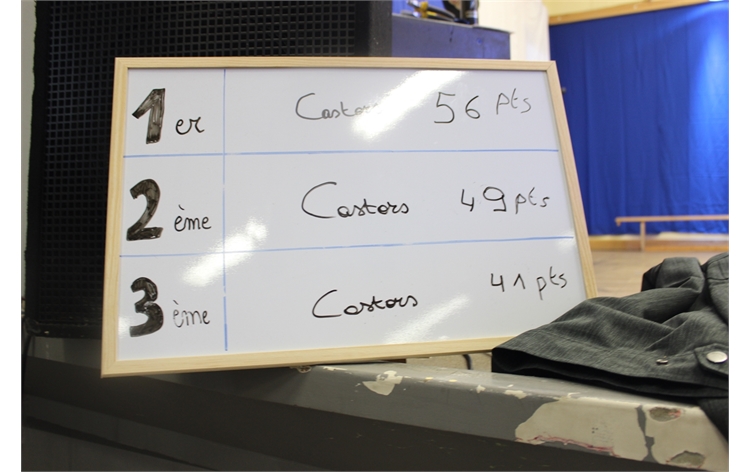 1er Castors 56 pts
2ème Castors 49 pts
3ème Castors 41 pts